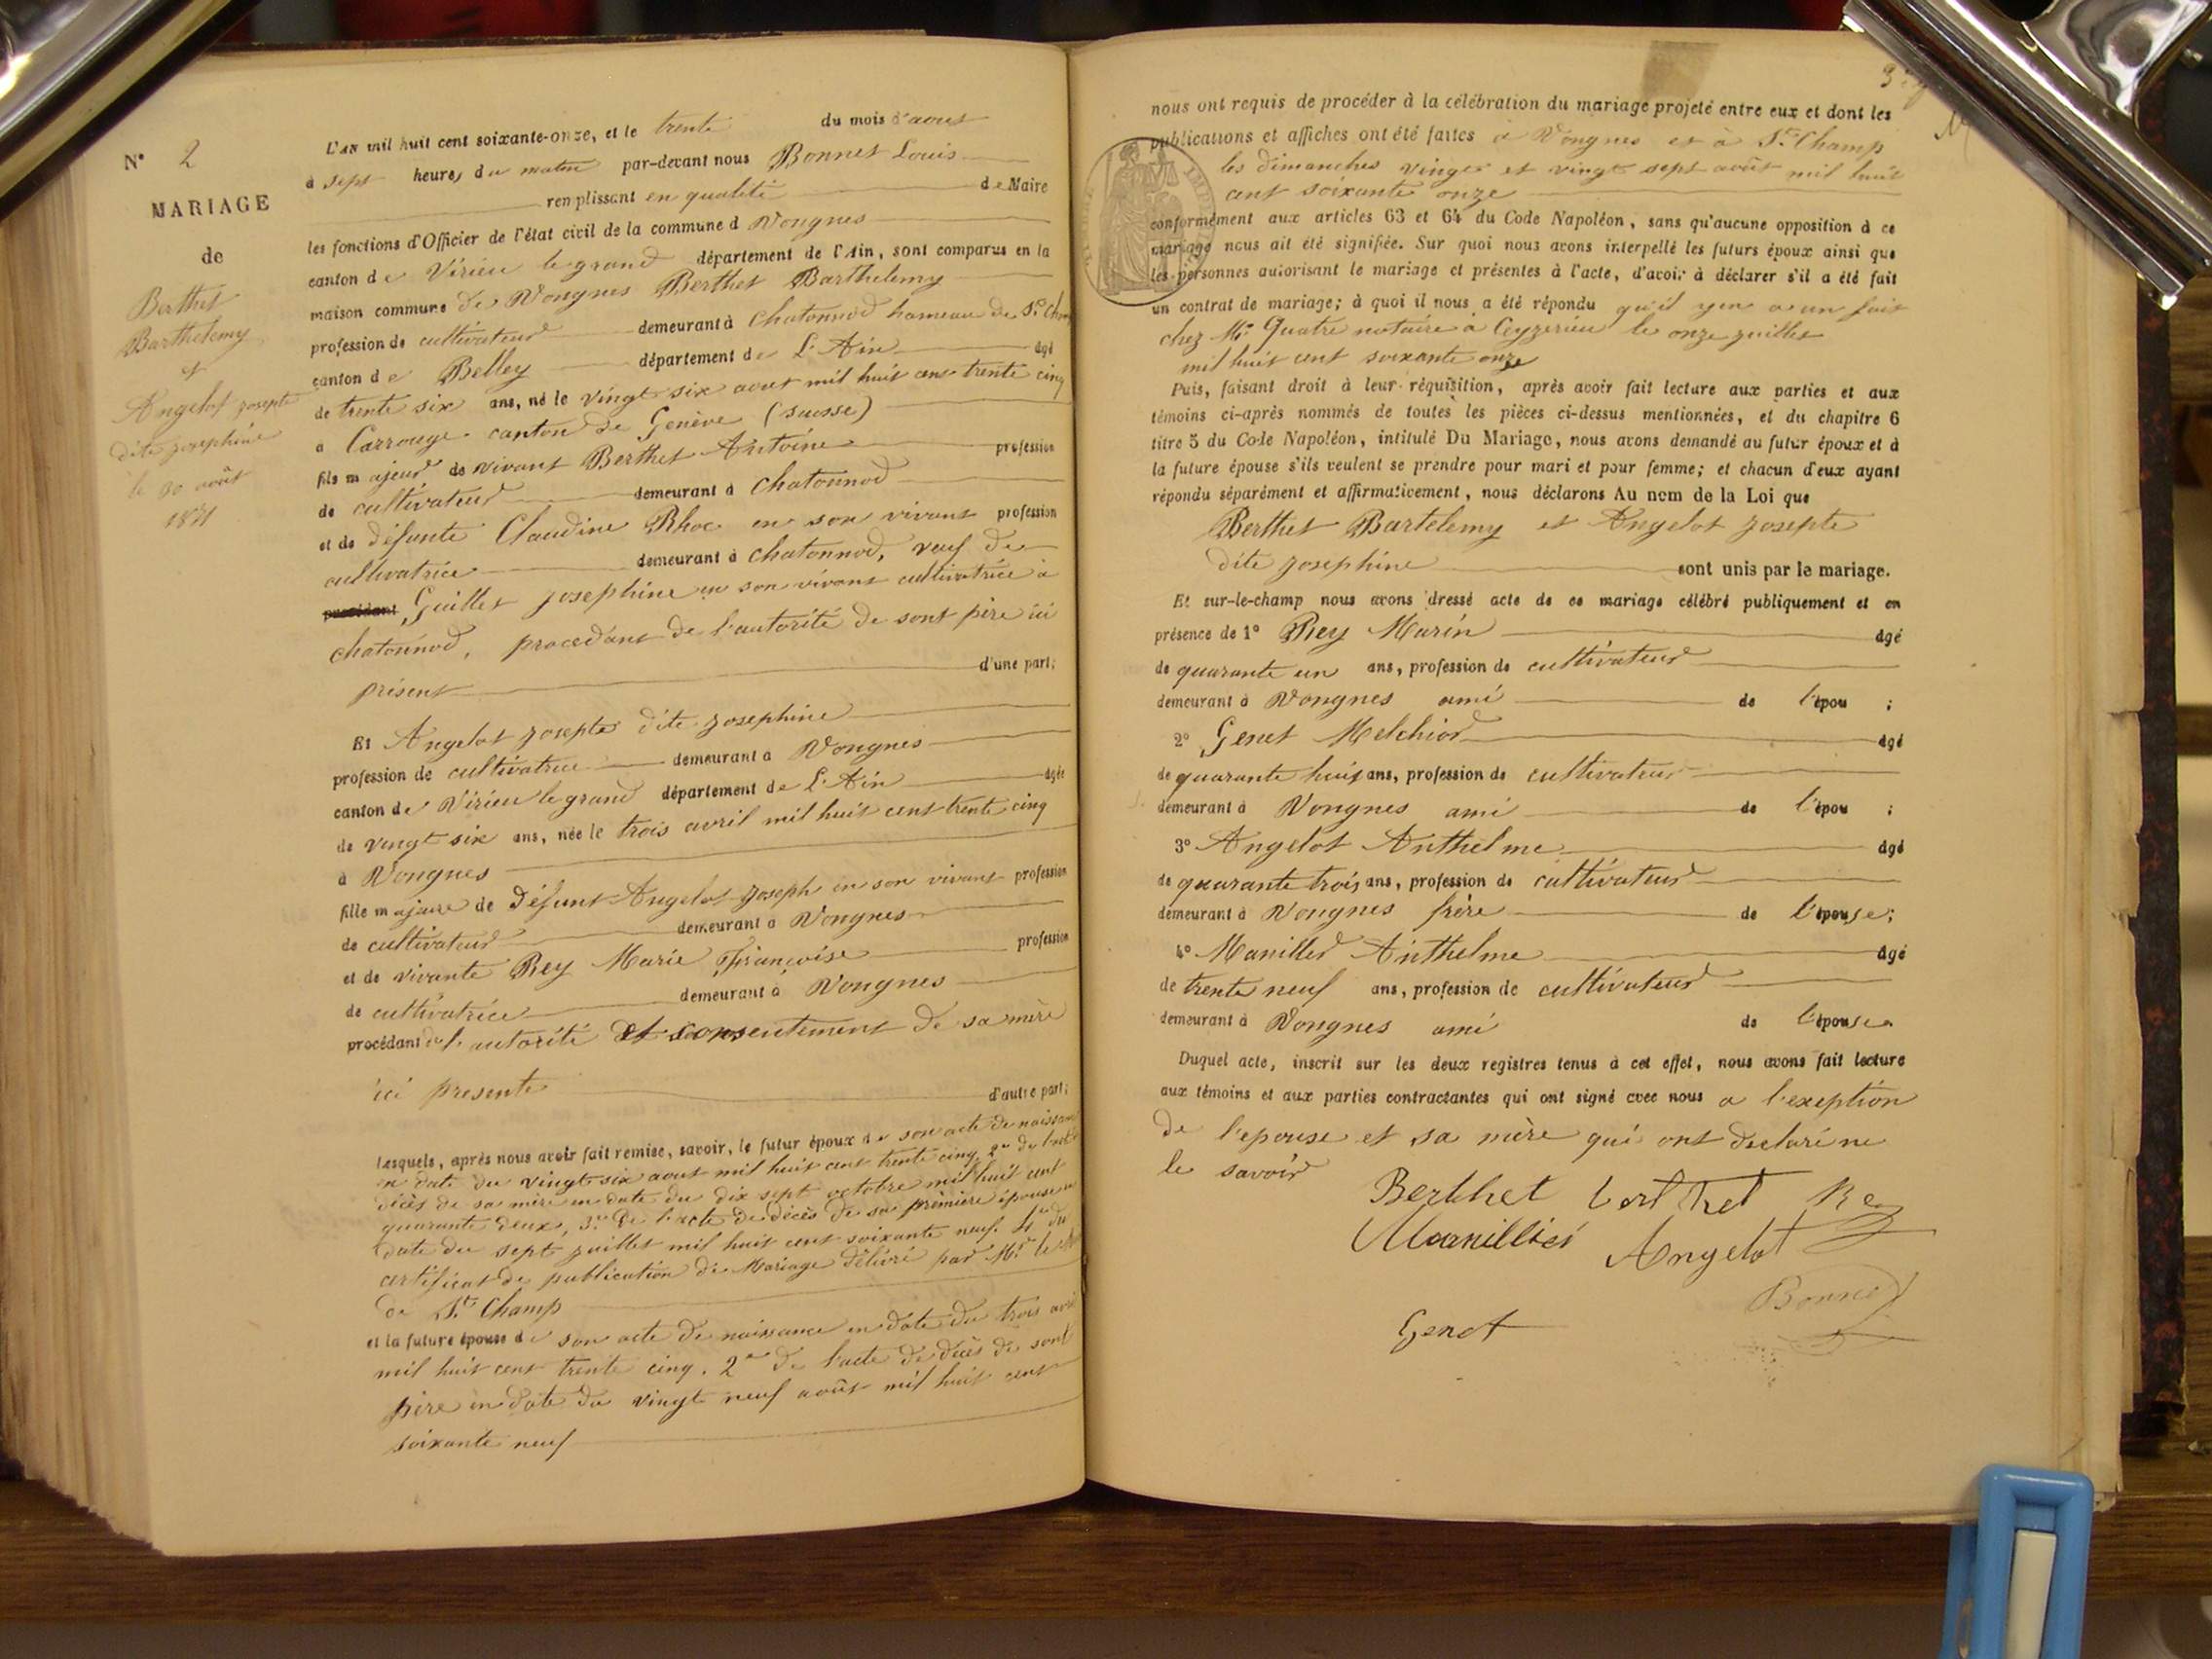 N° 2
MARIAGE
de
Berthet
Barthelemy
et
Angelot Josepte
dite Josephine
le 30 août
1871
L'an mil huit cent soixante-onze, et le trente du mois d'aout
à sept heures du matin par-devant nous Bonnet Louis
remplissant en qualité de Maire
les fonctions d'Officier de l'état civil de la commune d Vongnes
canton de Virieu le grand département de l'Ain, sont comparus en la
maison commune de Vongnes Berthet Barthelemy
profession de cultivateur demeurant à Chatonnod hameau de St Champ
canton de Belley département de L'Ain âgé
de trente six ans, né le vingt six aout mil huit cent trente cinq
a Carrouge canton de Genève (suisse)
fils majeur de vivant Berthet Antoine profession
de cultivateur demeurant à Chatonnod
et de défunte Claudine Rhoc en son vivant profession
cultivatrice demeurant à chatonnod, veuf de
Guillet Josephine en son vivant cultivatrice à
chatonnod, procedant de l'autorité de sont père ici
présent d'une part;
Et Angelot Josepte dite Josephine
profession de cultivatrice demeurant à Vongnes
canton de Virieu le grand département de L'Ain âgée
de vingt six ans, née le trois avril mil huit cent trente cinq
à Vongnes
fille majeure de défunt Angelot Joseph en son vivant profession
de cultivateur demeurant à Vongnes
et de vivante Rey Marie Françoise profession
de cultivatrice demeurant à Vongnes
procédant de l'autorité et consentement de sa mère
ici presente d'autre part;
Lesquels, après nous avoir fait remise, savoir, le futur époux de son acte de naissance
en date du vingt six aout mil huit cent trente cinq, 2° de l'acte
décès de sa mère en date du dix sept octobre mil huit cent
quarante deux, 3° de l'acte de décès de sa première épouse en
date du sept juillet mil huit cent soixante neuf. 4° du
certificat de publication de Mariage délivré par Mr le
de St Champ
et la future épouse de son acte de naissance en date du trois avril
mil huit cent trente cinq. 2° de l'acte de décès de sont
père en date du vingt neuf août mil huit cent
soixante neuf
nous ont requis de procéder à la célébration du mariage projeté entre eux et dont les
publications et affiches ont été faites à Vongnes et à St Champ
les dimanches vingt et vingt sept août mil huit
cent soixante onze
conformément aux articles 63 et 64 du Code Napoléon, sans qu'aucune opposition à ce
mariage nous ait été signifiée. Sur quoi nous avons interpellé les futurs époux ainsi que
les personnes autorisant le mariage et présentes à l'acte, d'avoir à déclarer s'il a été fait
un contrat de mariage; à quoi il nous a été répondu qu'il y en a un fait
chez Me Quatre notaire à Ceyzerieu le onze juillet
mil huit cent soixante onze
Puis, faisant droit à leur réquisition, après avoir fait lecture aux parties et aux
témoins ci-après nommés de toutes les pièces ci-dessus mentionnées, et du chapitre 6
titre 5 du Code Napoléon, intitulé Du Mariage, nous avons demandé au futur époux et à
la future épouse s'ils veulent se prendre pour mari et pour femme; et chacun d'eux ayant
répondu séparément et affirmativement, nous déclarons Au nom de la Loi que
Berthet Bartelemy et Angelot Josepte
dite Josephine sont unis par le mariage.
Et sur-le-champ nous avons dressé acte de ce mariage célébré publiquement et en
présence de 1° Rey Marin âgé
de quarante un ans, profession de cultivateur
demeurant à Vongnes ami de l'épou ;
2° Genet Melchior âgé
de quarante huit ans, profession de cultivateur
demeurant à Vongnes ami de l'épou ;
3° Angelot Anthelme âgé
de quarante trois ans, profession de cultivateur
demeurant à Vongnes frère de l'épouse;
4° Manillier Anthelme âgé
de trente neuf ans, profession de cultivateur
demeurant à Vongnes ami de l'épouse
Duquel acte, inscrit sur les deux registres tenus à cet effet, nous avons fait lecture
aux témoins et aux parties contractantes qui ont signé avec nous a l'exeption
de l'epouse et sa mère qui ont declaré ne
le savoir
Berthet bert het Rey
Manillier Angelot
Bonnet
Genet